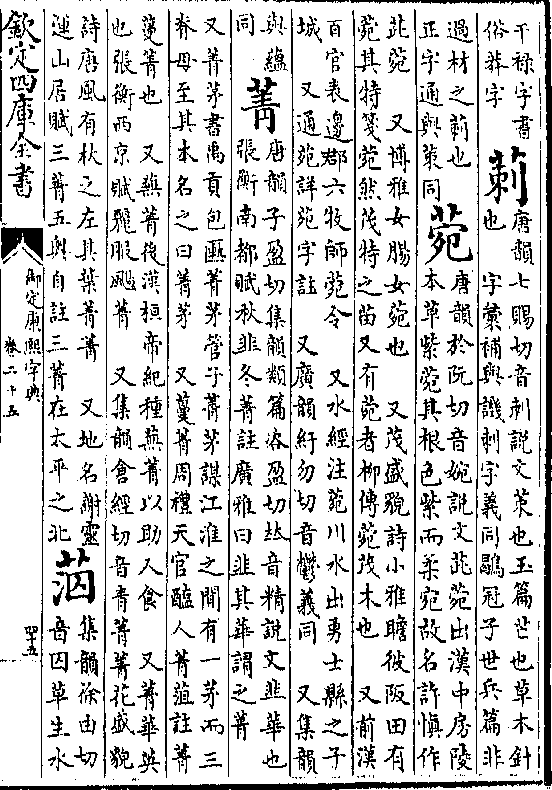 干禄字書
俗茻字
莿
唐韻七賜切音刺說文茦也玉篇芒也草木針
也 字彙補與譏刺字義同鶡冠子世兵篇非
過材之莿也
正字通與茦同
菀
唐韻於阮切音婉說文茈菀出漢中房陵
本草紫菀其根色紫而柔宛故名許慎作
茈菀 又博雅女腸女菀也 又茂盛貌詩小雅瞻彼阪田有
菀其特箋菀然茂特之苗又有菀者柳傳菀茂木也 又前漢
百官表邊郡六牧師菀令 又水經注菀川水出勇士縣之子
城 又通苑詳苑字註 又廣韻紆勿切音鬱義同 又集韻
與蘊
同
菁
唐韻子盈切集韻類篇咨盈切𠀤音精說文韭華也
張衡南都賦秋韭冬菁註廣雅曰韭其華謂之菁
又菁茅書禹貢包匭菁茅管子菁茅謀江淮之間有一茅而三
脊母至其本名之曰菁茅 又蔓菁周禮天官醢人菁菹註菁
蔓菁也 又蕪菁後漢桓帝紀種蕪菁以助人食 又菁華英
也張衡西京賦麗服颺菁 又集韻倉經切音青菁菁花盛貌
詩唐風有杕之杜其葉菁菁 又地名謝靈
連山居賦三菁五奧自註三菁在太平之北
集韻徐由切
音囚草生水
欽定四庫全書
御定康熙字典
卷二十五
四十五